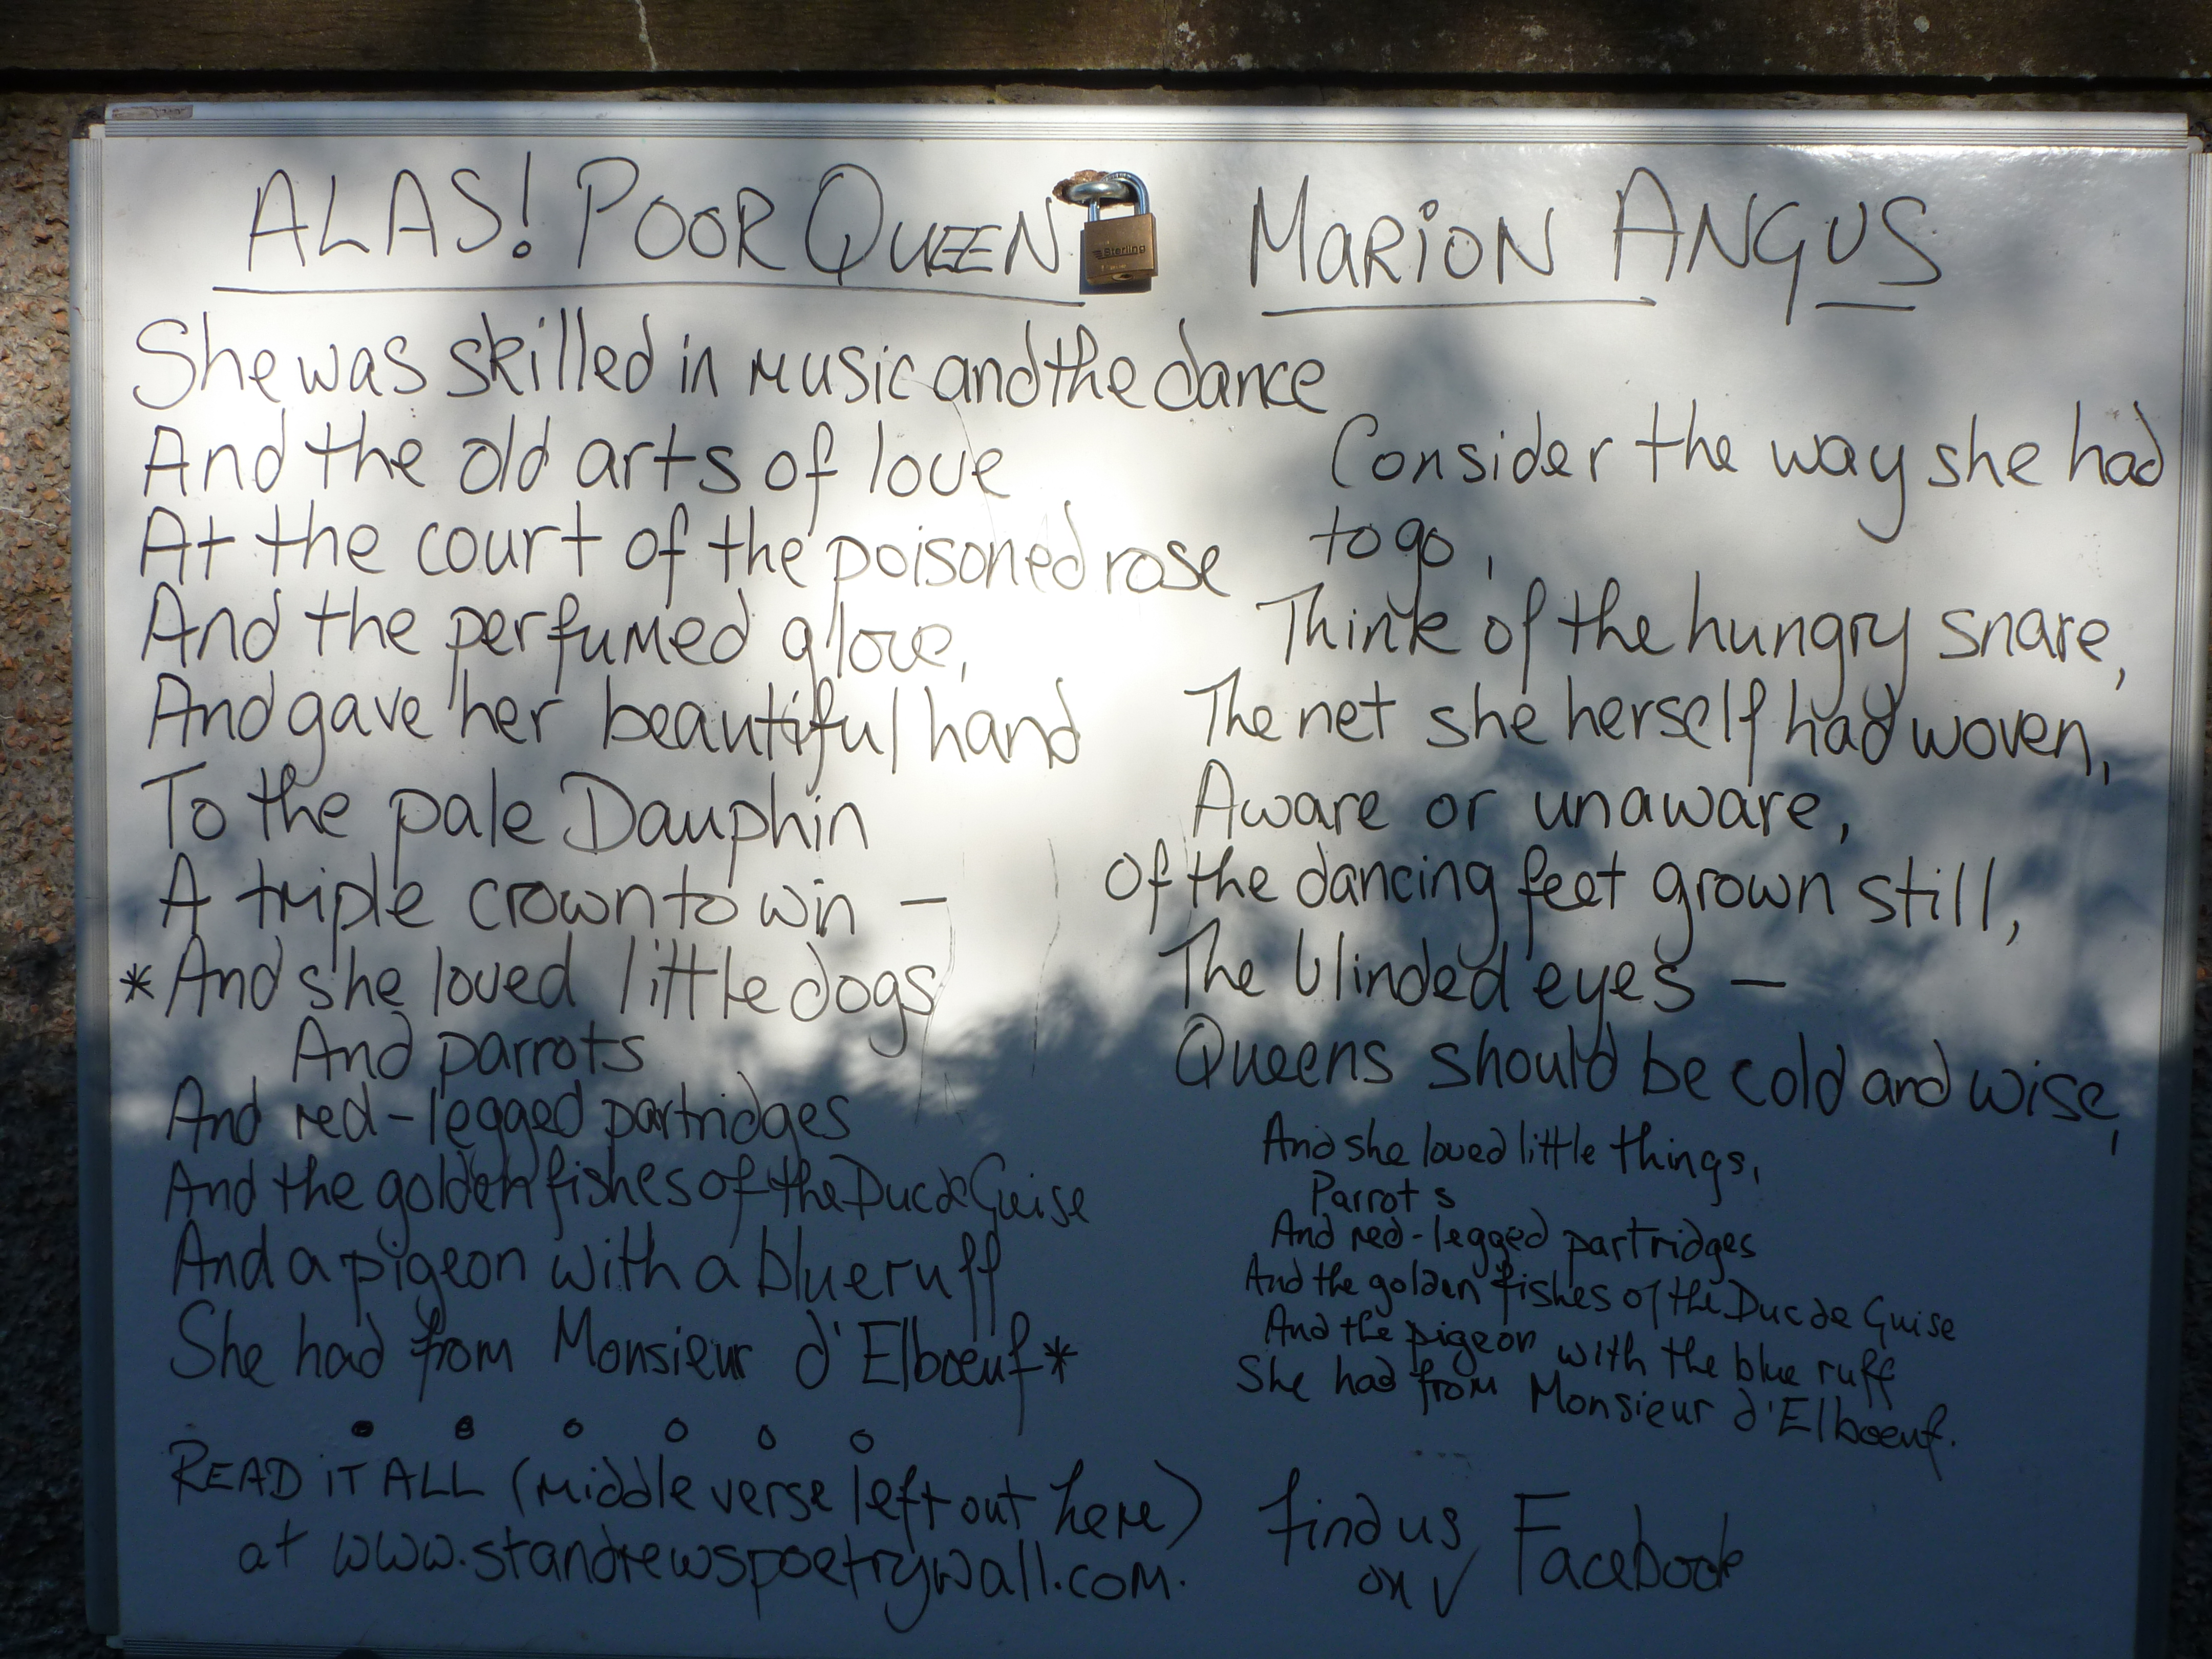 ALAS! POOR QUEEN
MARiON ANGUS
Sterling
She was skilled in music and the dance
And the old arts of love
At the court of the poisoned rose
And the perfumed glove,
And gave her beautiful hand
To the pale Dauphin
A triple crown to win –
*And she loved little dogs
And parrots
And red-legged partridges
And the golden fishes of the Duc de Guise
And a pigeon with a blue ruff
She had from Monsieur d'Elboeuf*
READ iT ALL (middle verse left out here)
at www.standrewspoetrywall.com.
Consider the way she had
to go,
Think of the hungry snare,
The net she herself had woven,
Aware or unaware,
Of the dancing feet grown still,
The blinded eyes –
Queens should be cold and wise,
And she loved little things,
Parrots
And red-legged partridges
And the golden fishes of the Duc de Guise
And the pigeon with the blue ruff
She had from Monsieur d'Elboeuf.
find us
on Facebook